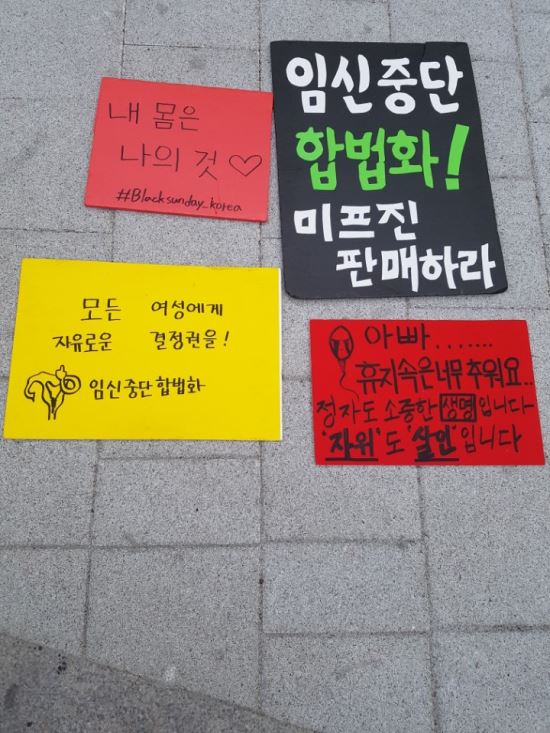 내 몸은
나의 것♡
#Blacksunday_korea
임신중단
합법화!
미프진
판매하라
모든 여성에게
자유로운 결정권을!
임신중단 합법화
아빠.......
휴지속은너무 추워요...
정자도 소중한 생명입니다
'자위'도 '살인'입니다